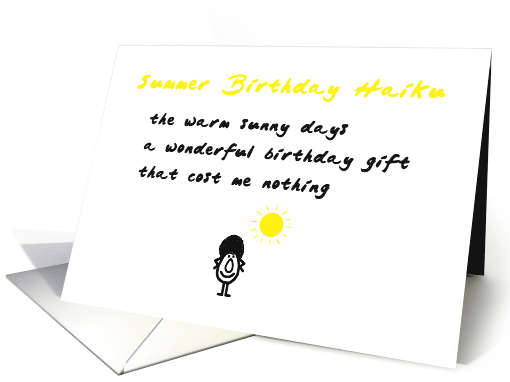 Summer Birthday Haiku
the warm sunny days
a wonderful birthday gift
that cost me nothing